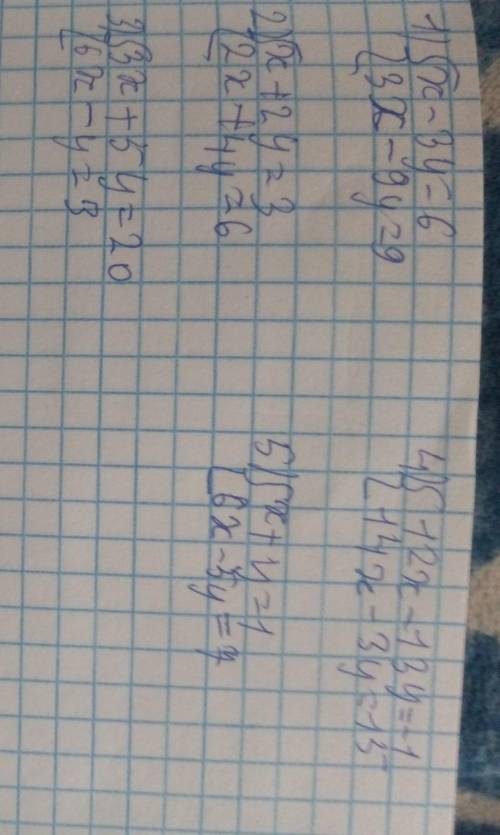 1) { x - 3y = 6
{ 3x - 9y = 9
2) { x + 2y = 3
{ 2x + 4y = 6
3) { 3x + 5y = 20
{ 6x - y = 3
4) { 12x - 13y = -1
{ 14x - 3y = 13
5) { x + y = 1
{ 6x - 5y = 7